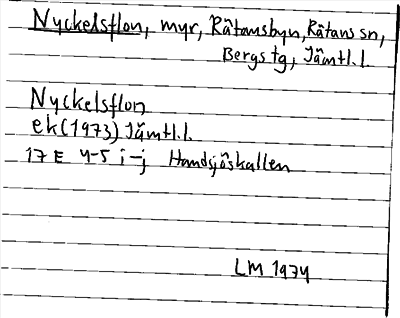 Nyckelsflon, myr, Råtansbyn, Råtans sn,
Bergs tg, Jämtl.l.
Nyckelsflon
ek(1973) Jämtl.l.
17 E 4-5 i-j Handsjöskallen
LM 1974